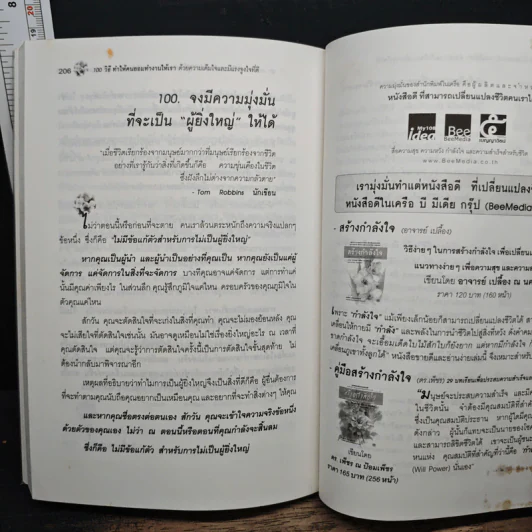 206
100 วิธี ทำให้คนยอมทำงานให้เรา ด้วยความเต็มใจและมีแรงจูงใจที่ดี
100. จงมีความมุ่งมั่น
ที่จะเป็น "ผู้ยิ่งใหญ่" ให้ได้
"เมื่อชีวิตเรียกร้องจากมนุษย์มากกว่าที่มนุษย์เรียกร้องจากชีวิต
อย่างที่เรารู้กันว่าสิ่งที่เกิดขึ้นก็คือ ความขุ่นเคืองในชีวิต
ซึ่งฝังลึกไม่ต่างจากความกลัวตาย"
- Tom Robbins นักเขียน
ไม่ว่าตอนนี้หรือก่อนที่จะตาย คนเราล้วนตระหนักถึงความจริงแปลกๆ
ข้อหนึ่ง ซึ่งก็คือ "ไม่มีข้อแก้ตัวสำหรับการไม่เป็นผู้ยิ่งใหญ่"
หากคุณเป็นผู้นำ และผู้นำเป็นอย่างที่คุณเป็น หากคุณยังเป็นแค่ผู้
จัดการ แค่จัดการในสิ่งที่จะจัดการ บางทีคุณอาจแค่จัดการ แต่การทำแค่
นั้นมีคุณค่าเพียงไร ในส่วนลึก คุณรู้สึกภูมิใจแค่ไหน ครอบครัวของคุณภูมิใจใน
ตัวคุณแค่ไหน
สักวัน คุณจะตัดสินใจที่จะเก่งในสิ่งที่คุณทำ คุณจะไม่มองย้อนหลัง คุณ
จะไม่เสียใจที่ตัดสินใจเช่นนั้น มันอาจดูเหมือนไม่ใช่เรื่องยิ่งใหญ่อะไร ณ เวลาที่
คุณตัดสินใจ แต่คุณจะรู้ว่าการตัดสินใจครั้งนี้เป็นการตัดสินใจขั้นสุดท้าย ไม่
ต้องนำกลับมาพิจารณาอีก
เหตุผลที่อธิบายว่าทำไมการเป็นผู้ยิ่งใหญ่จึงเป็นสิ่งที่ดีก็คือ ผู้อื่นต้องการ
ที่จะทำตามคุณนับถือคุณอยากเป็นเหมือนคุณ และอยากที่จะทำสิ่งต่างๆ ให้คุณ
และหากคุณซื่อตรงต่อตนเอง สักวัน คุณจะเข้าใจความจริงข้อหนึ่ง
ด้วยตัวของคุณเอง ไม่ว่า ณ ตอนนี้หรือตอนที่คุณกำลังจะสิ้นลม
ซึ่งก็คือ ไม่มีข้อแก้ตัว สำหรับการไม่เป็นผู้ยิ่งใหญ่
หนังสือดี ที่สามารถเปลี่ยนแปลงชีวิตคนเรา
idea
Bee
BeeMedia
เบญญาวัฒน์
สื่อความสุข ความหวัง กำลังใจ และความสำเร็จสำหรับชีวิต
www.BeeMedia.co.th
เรามุ่งมั่นทำแต่หนังสือดี ที่เปลี่ยนแปลง
หนังสือดีในเครือ บี มีเดีย กรุ๊ป (BeeMedia
- สร้างกำลังใจ (อาจารย์ เปลื้อง)
วิธีง่ายๆ ในการสร้างกำลังใจ เพื่อเปลี่ยน
แนวทางง่ายๆ เพื่อความสุข และความ
เขียนโดย อาจารย์ เปลื้อง ณ นคร
ราคา 120 บาท (160 หน้า)
เพราะ "กำลังใจ" แม้เพียงเล็กน้อยก็สามารถเปลี่ยนแปลงชีวิตได้
- คู่มือสร้างกำลังใจ
เขียนโดย
ดร.เพียร ณ ป้อมเพชร
ราคา 165 บาท (256 หน้า)
(Will Power) นั่นเอง"